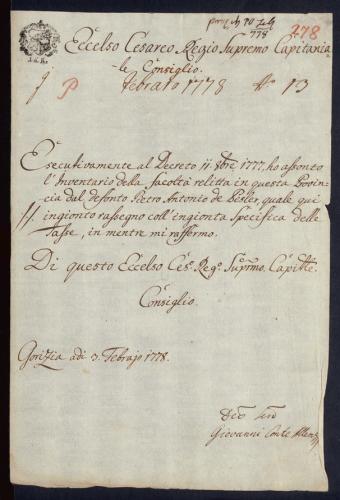 278
Eccelso Cesareo Regio Supremo Capitania
le Consiglio.
febraro 1778 No 13
P
Esecutivamente al Decreto 11 Xbre 1777, ho assonto
l'Inventario della facoltà relitta in questa Provin-
cia dal defonto Pietro Antonio de Pesler, quale qui
ingionto rassegno coll'ingionta Specifica delle
Tasse, in mentre mi raffermo.
Di questo Eccelso Ces.o Reg.o Supmo. Capitle.
Consiglio.
Gorizia adi 3. Febrajo 1778.
Giovanni Conte